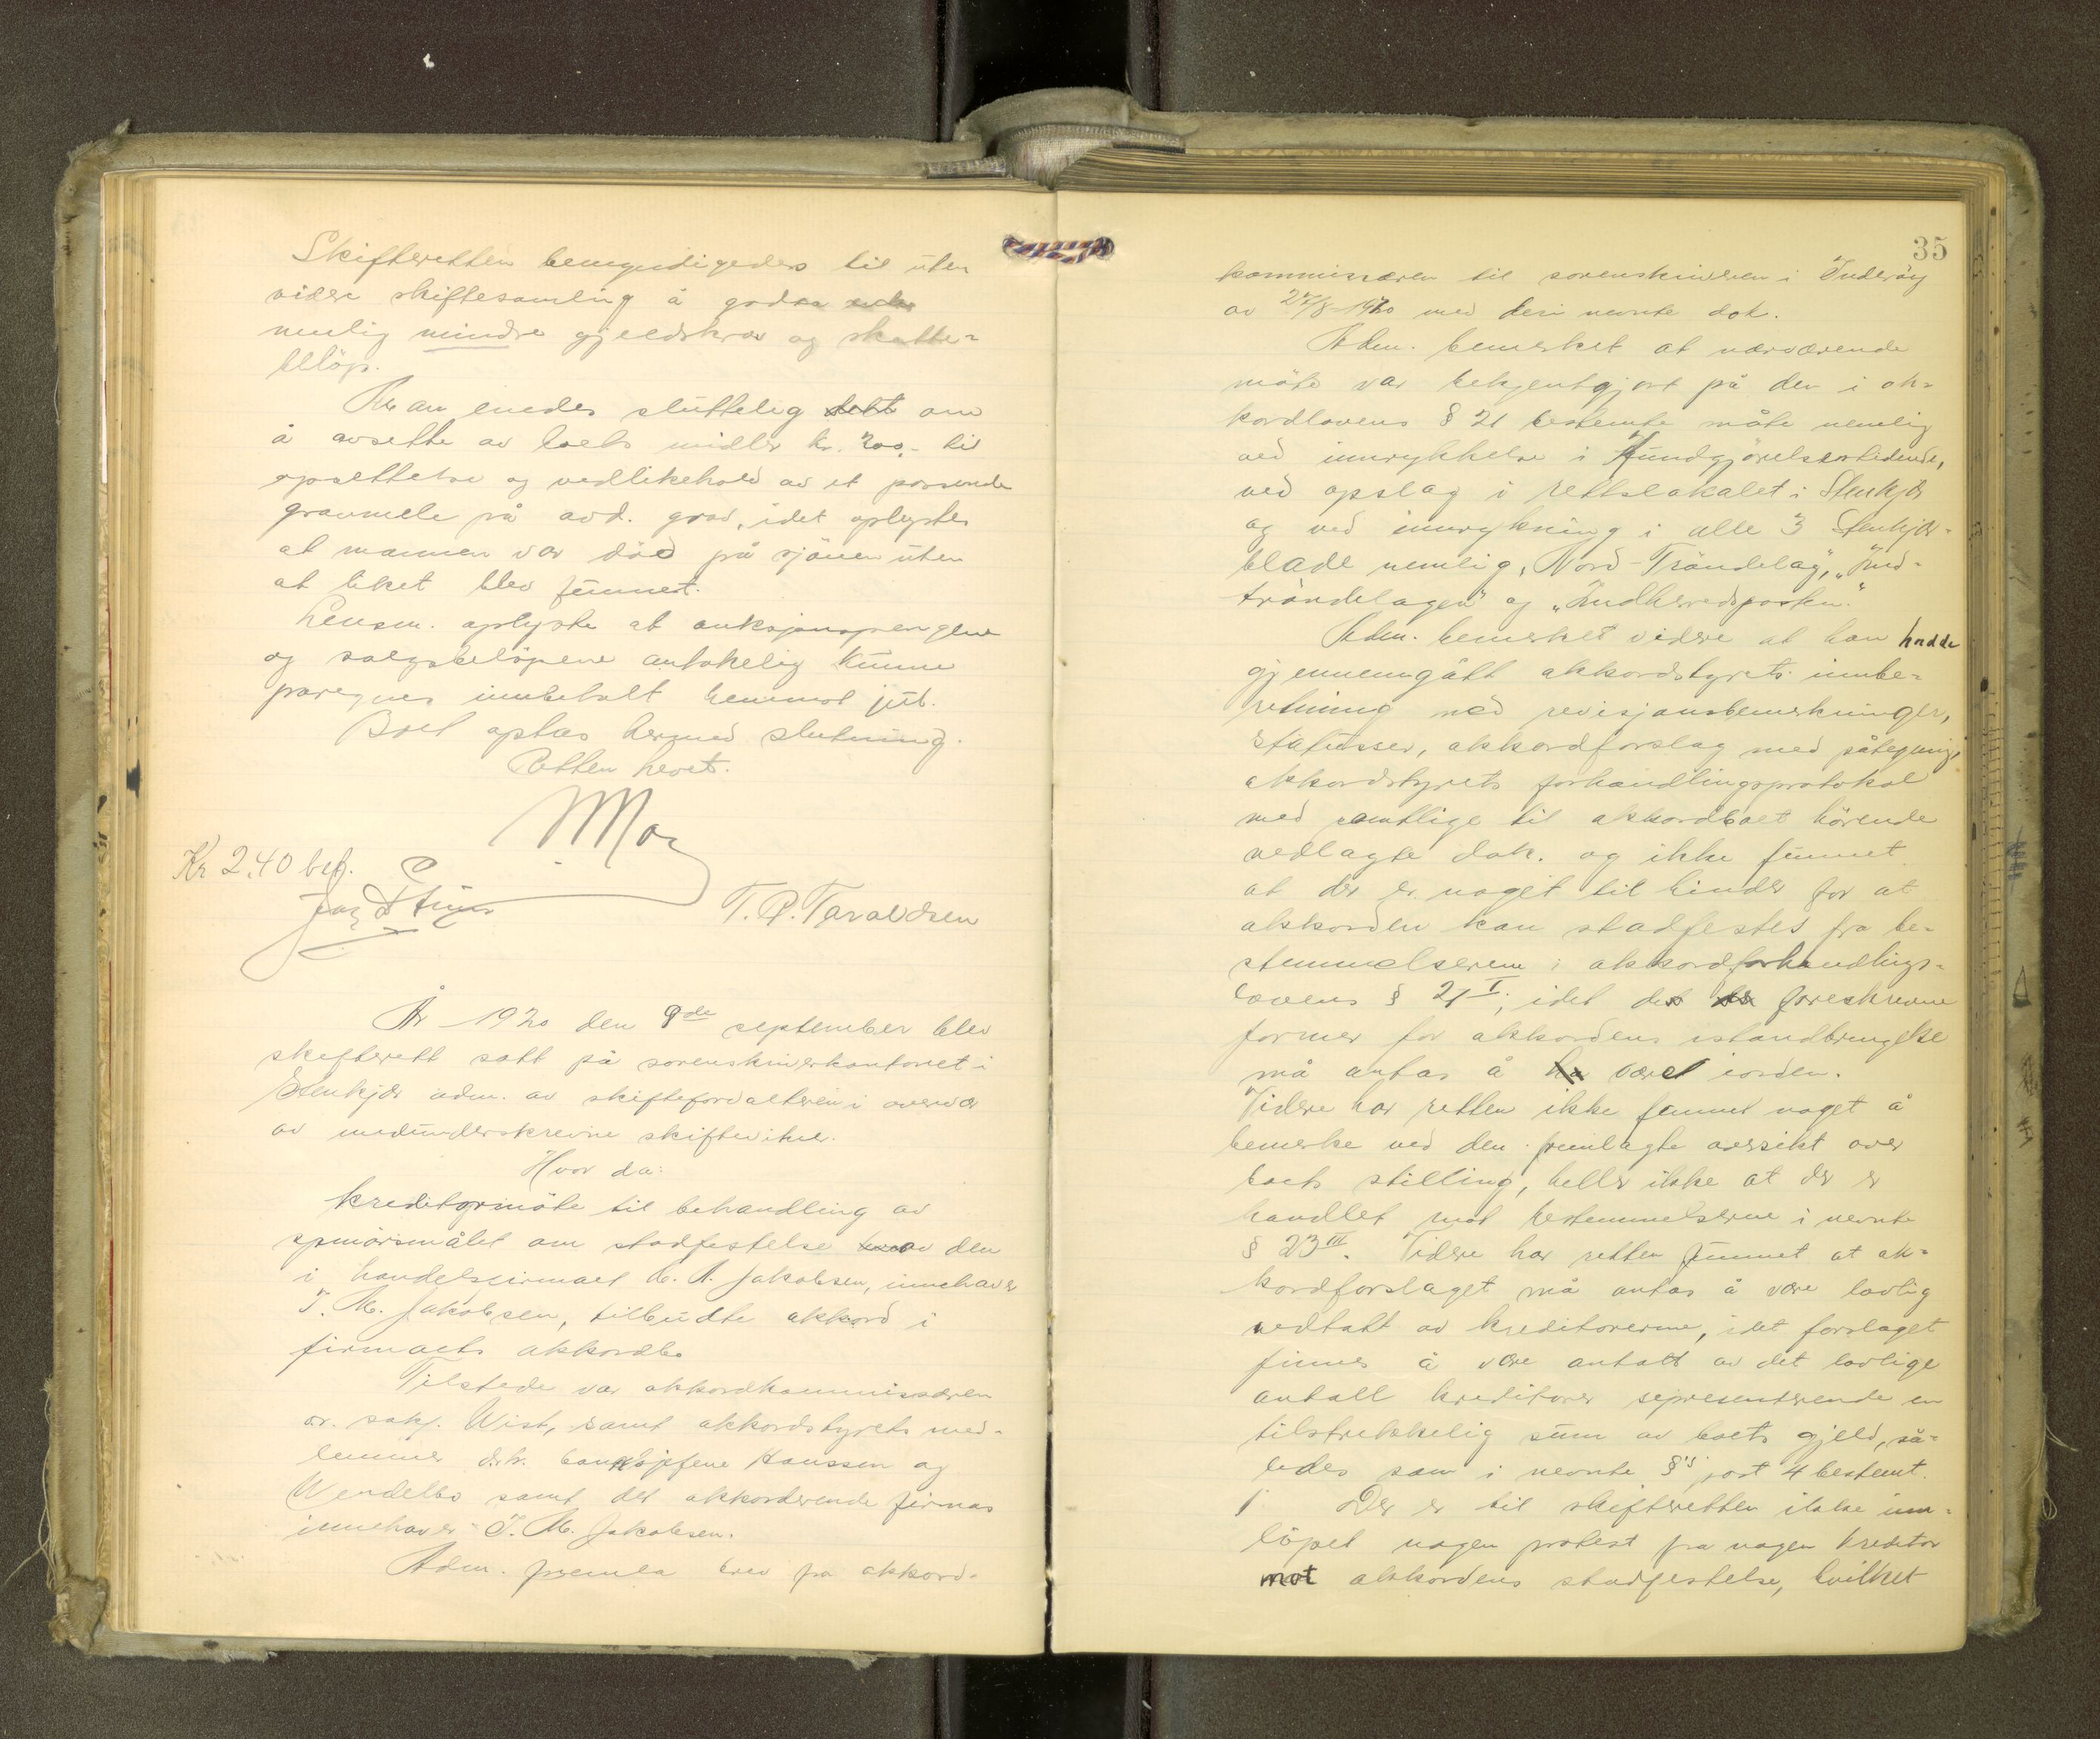 Skifteretten bemyndigedes til uten
videre skiftesamling å godta
nemlig mindre gjeldskrav og skatte-
belöp.
Man enedes sluttelig om
å avsette av boets midler kr. 200,- til
opsettelse og vedlikehold av et passende
gravmele på avd. grav, idet oplystes
at mannen var död på sjöen uten
at liket blev funnet.
Lensm. oplyste at auksjonspengene
og salgsbelöpene antakelig kunne
påregnes innbetalt henimot jul.
Boet optas dermed slutning.
Retten hevet.
Kr 2.40 bet.
T. P. Taraldsen
År 1920 den 9de september blev
skifterett satt på sorenskriverkontoret i
Stenkjær adm. av skifteforvalteren i overvær
av medunderskrevne skiftevitne.
Hvor da:
kreditormöte til behandling av
spörsmålet om stadfestelse av den
i handelsfirmaet M. A. Jakobsen, innehaver
T. M. Jakobsen, tilbudte akkord i
firmaets akkordbo
Tilstede var akkordkommissæren
o.r. sakf. Wist, samt akkordstyrets med-
lemmer d.h. bankkjefene Hanssen og
Wendelbo samt det akkorderende firmas
innehaver T. M. Jakobsen.
Adm. fremla brev fra akkord-
35
kommissæren til sorenskriveren i Inderöy
av 27/8-1920 med deri nevnte dok.
Adm. bemerket at nærværende
möte var bekjentgjort på den i ak-
kordlovens § 21 bestemte måte nemlig
ved innrykkelse i Kundgjörelsestidende,
ved opslag i rettslokalet i Stenkjær
og ved innrykning i alle 3 Stenkjær-
blade nemlig, Nord-Tröndelag", "Inn-
tröndelagen" og "Indherredsposten".
Adm. bemerket videre at han hadde
gjennemgått akkordstyrets innbe-
retning med revisjonsbemerkninger,
statusser, akkordforslag med påtegning,
akkordstyrets forhandlingsprotokol
med samtlige til akkordboet hörende
vedlagte dok. og ikke funnet
at der er noget til hinder for at
akkorden kan stadfestes fra be-
stemmelserne i akkordforhandlings-
lovens § 21 I, idet de foreskrevne
former for akkordens istandbringelse
må antas å være iorden.
Videre har retten ikke funnet noget å
bemerke ved den fremlagte oversikt over
boets stilling, heller ikke at der er
handlet mot bestemmelserne i nevnte
§ 23 III. Videre har retten funnet at ak-
kordforslaget må antas å være lovlig
vedtatt av kreditorerne, idet forslaget
finnes å være antatt av det lovlige
antall kreditorer representerende en
tilstrekkelig sum av boets gjeld, så-
ledes som i nevnte §'s post 4 bestemt.
Der er til skifteretten ikke inn-
löpet nogen protest fra nogen kreditor
mot akkordens stadfestelse, hvilket